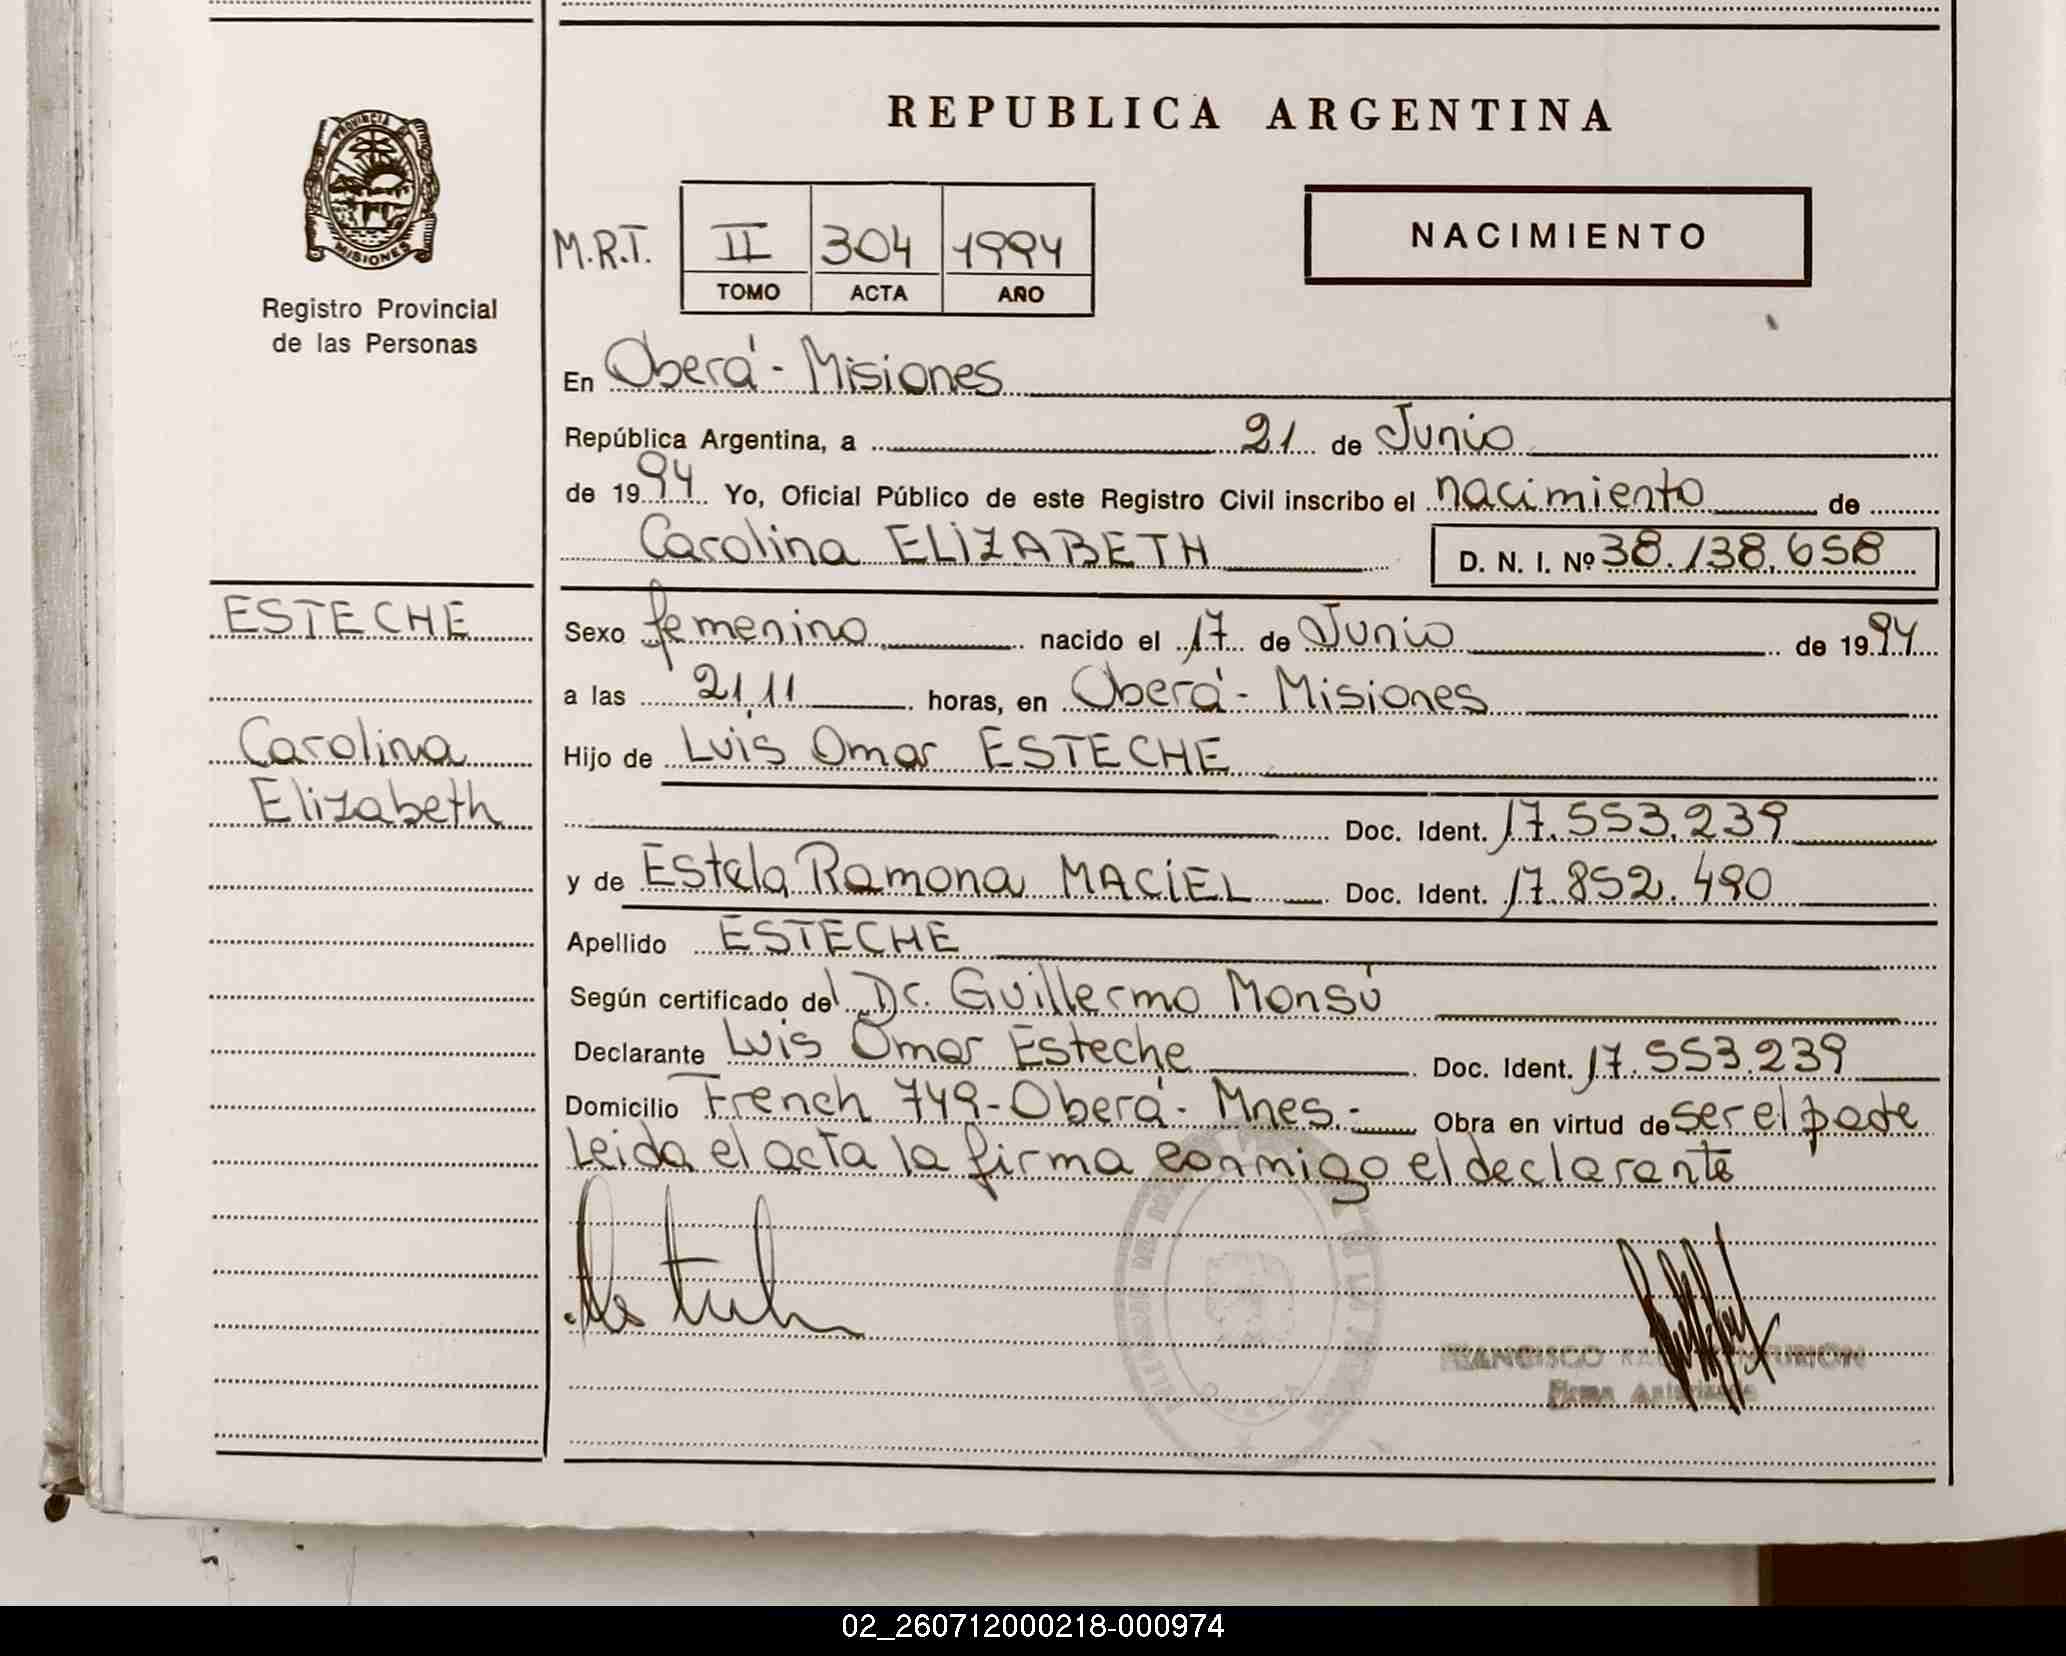 REPUBLICA ARGENTINA
PROVINCIA DE
MISIONES
Registro Provincial
de las Personas
M.R.T. II 304 1994
TOMO ACTA AÑO
NACIMIENTO
En Oberá - Misiones
República Argentina, a 21 de Junio
de 1994 Yo, Oficial Público de este Registro Civil inscribo el nacimiento de
Carolina ELIZABETH D. N. I. Nº 38.138.658
ESTECHE
Carolina
Elizabeth
Sexo femenino nacido el 17 de Junio de 1994
a las 21,11 horas, en Oberá - Misiones
Hijo de Luis Omar ESTECHE
Doc. Ident. 17.553.239
y de Estela Ramona MACIEL Doc. Ident. 17.852.490
Apellido ESTECHE
Según certificado del Dr. Guillermo Monsú
Declarante Luis Omar Esteche Doc. Ident. 17.553.239
Domicilio French 749 - Oberá - Mnes.- Obra en virtud de ser el padre
Leida el acta la firma conmigo el declarante
FRANCISCO
02_260712000218-000974